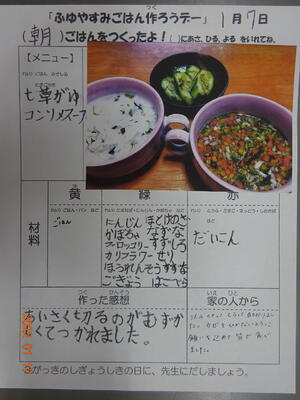 「ふゆやすみごはん作ろうデー」 1月7日
(朝)ごはんをつくったよ！( )にあさ、ひる、よる をいれてね。
【メニュー】
七草がゆ
コンソメスープ
黄
緑
赤
材料
ごはん
にんじん
かぼちゃ
ブロッコリー
カリフラワー
ほうれんそう
ごぎょう
ほとけのざ
なずな
すずしろ
せり
はこべら
だいこん
作った感想
家の人から
ちいさくきるのがむずか
しくてつかれました。
③がっきのしぎょうしきの日に、先生にだしましょう。